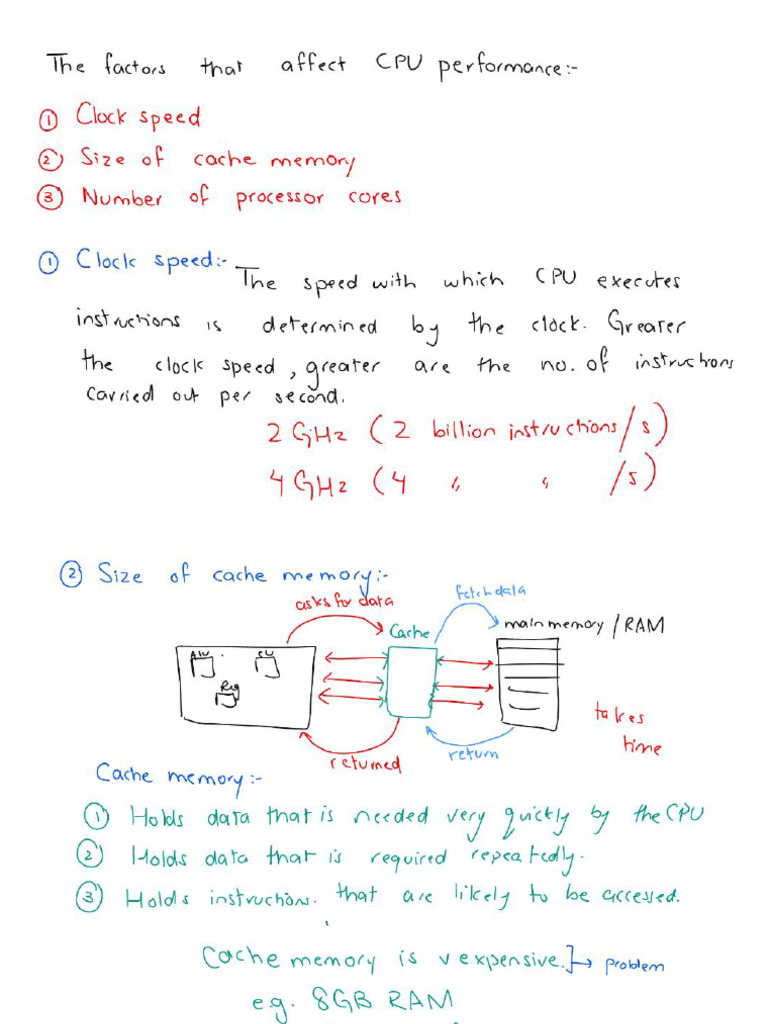 The factors that affect CPU performance:-
① Clock speed
② Size of cache memory
③ Number of processor cores
① Clock speed:-
The speed with which CPU executes
instructions is determined by the clock. Greater
the clock speed, greater are the no. of instructions
carried out per second.
2 GHz (2 billion instructions/s)
4 GHz (4 〃 〃 /s)
② Size of cache memory:-
fetch data
asks for data
Cache
main memory / RAM
ALU
CU
Reg
takes
time
returned
return
Cache memory:-
① Holds data that is needed very quickly by the CPU
② Holds data that is required repeatedly.
③ Holds instructions. that are likely to be accessed.
Cache memory is v expensive.]→ problem
e.g. 8GB RAM